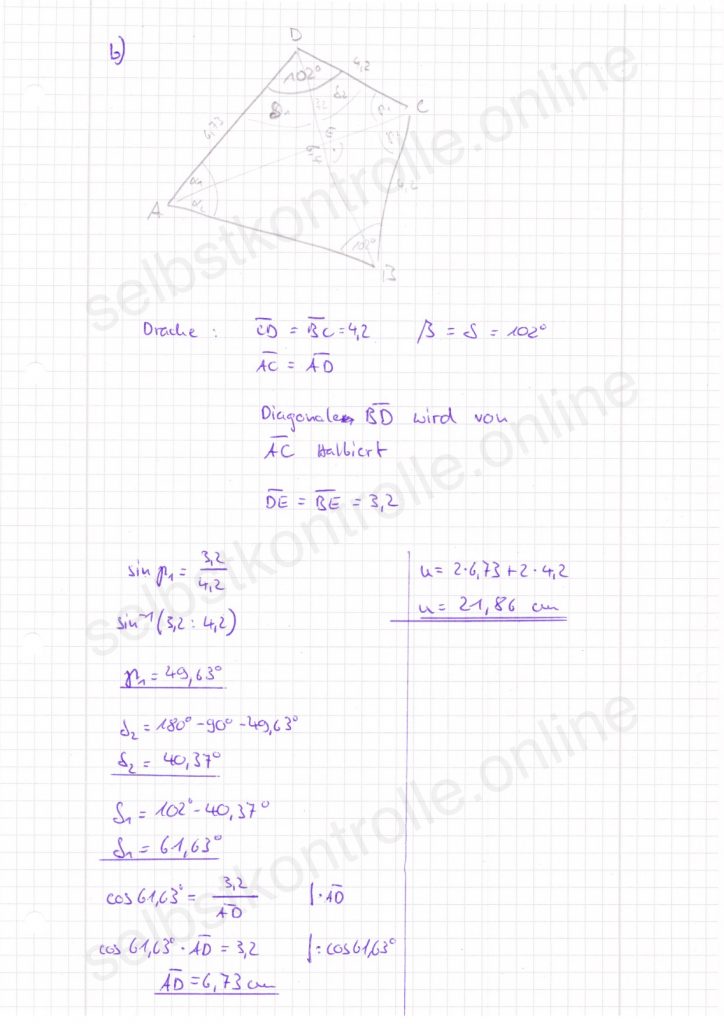 b)
D
4,2
102°
δ2
δ1
3,2
γ1
C
6,73
E
4,2
α1
α2
A
102°
B
Drache : CD = BC = 4,2 β = δ = 102°
AC = AD
Diagonale BD wird von
AC Halbiert
DE = BE = 3,2
sin γ1 = 3,2 / 4,2
sin⁻¹(3,2 : 4,2)
γ1 = 49,63°
δ2 = 180° - 90° - 49,63°
δ2 = 40,37°
δ1 = 102° - 40,37°
δ1 = 61,63°
cos 61,63° = 3,2 / AD | · AD
cos 61,63° · AD = 3,2 | : cos 61,63°
AD = 6,73 cm
u = 2·6,73 + 2·4,2
u = 21,86 cm
selbstkontrolle.online
selbstkontrolle.online
selbstkontrolle.online